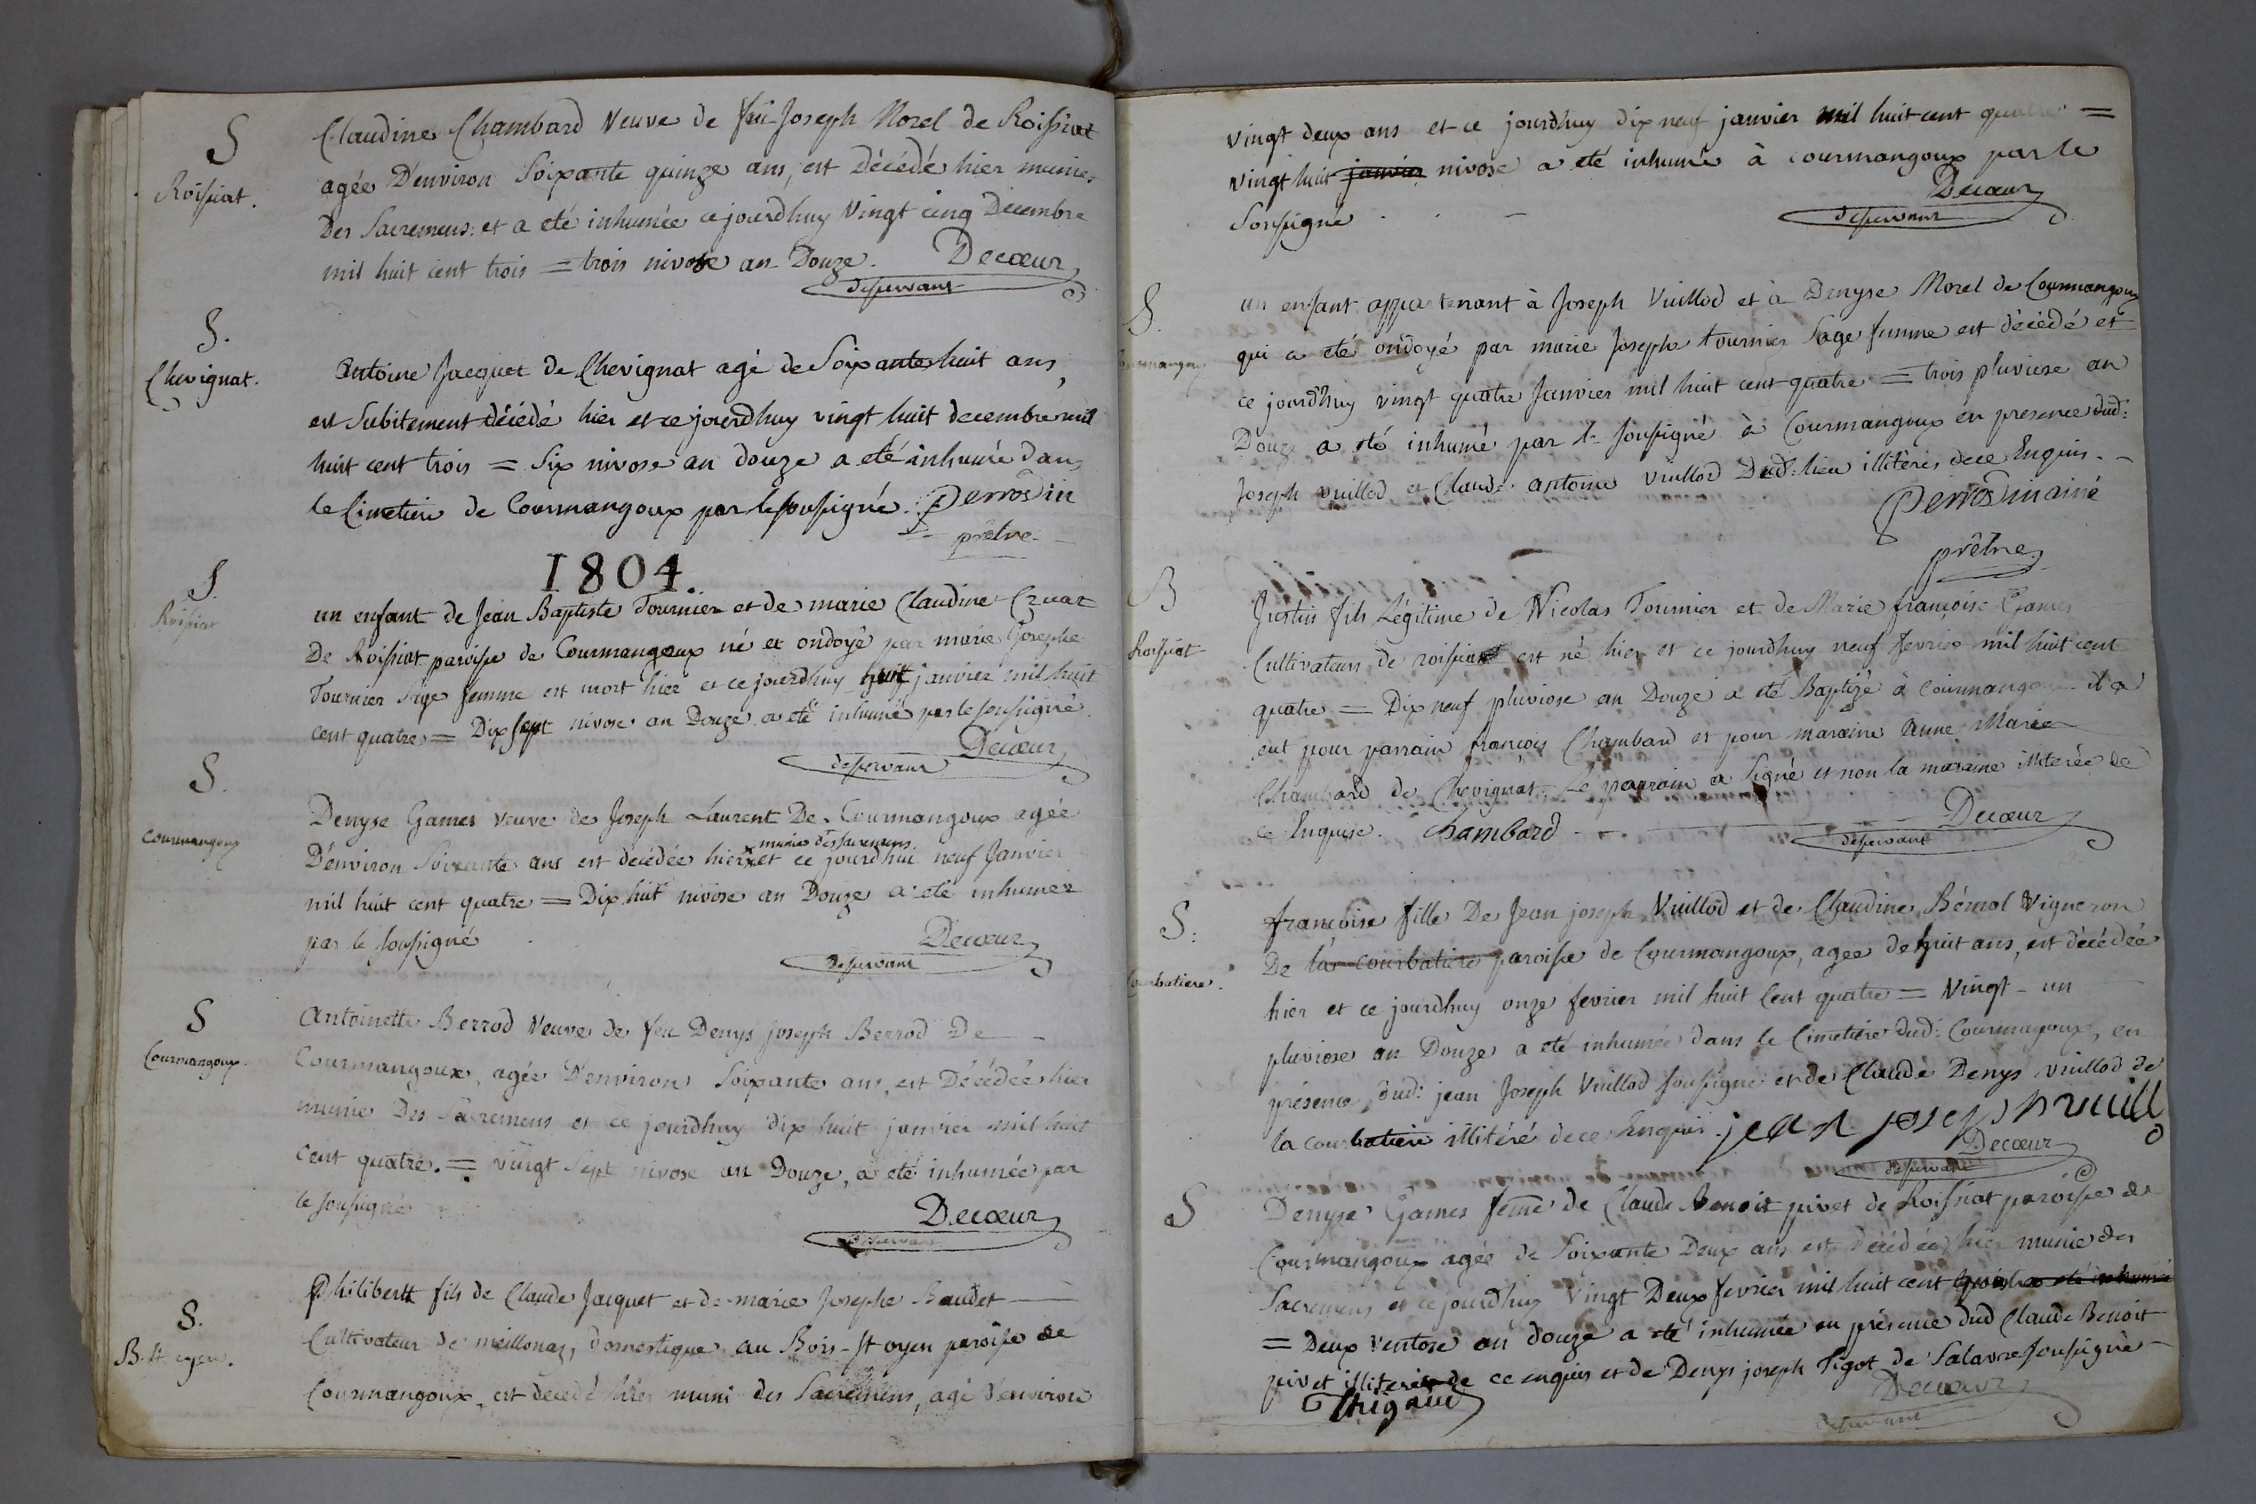 S
Roissiat.
Claudine Chambard Veuve de feu Joseph Morel de Roissiat
agée D'environ Soixante quinze ans, est Décédé hier munie
Des Sacremens: et a eté inhumée ce jourdhuy Vingt cinq Decembre
mil huit cent trois = trois nivose an Douze. Decœur
desservant
S.
Chevignat.
Antoine Jacquet de Chevignat agé de Soixante huit ans,
est Subitement décédé hier et ce jourdhuy vingt huit decembre mil
huit cent trois = Six nivose an douze a eté inhumé dans
le Cimetiere de Courmangoux par le soussigné. Perrodin
prêtre
1804.
S.
Roissiat
un enfant de Jean Baptiste Tournier et de marie Claudine
De Roissiat paroisse de Courmangoux né et ondoyé par marie Josephe
Tournier Sage femme est mort hier et ce jourdhuy huit janvier mil huit
cent quatre = Dix sept nivose an Douze a eté inhumé par le soussigné.
Decœur
desservant
S.
Courmangoux
Denyse Games Veuve de Joseph Laurent De Courmangoux agée
munie des sacremens
D'environ Soixante ans est decédée hier et ce jourdhui neuf Janvier
mil huit cent quatre = Dix huit nivose an Douze a eté inhumée
par le soussigné
Decœur
desservant
S
Courmangoux.
Antoinette Berrod Veuve de feu Denys joseph Berrod De
Courmangoux, agée D'environ Soixante ans, est Décédée hier
munie Des Sacremens et ce jourdhuy dix huit janvier mil huit
cent quatre. = vingt Sept nivose an Douze, a eté inhumée par
le soussigné
Decœur
desservant
S.
B. St oyen.
Philibert fils de Claude Jacquet et de marie Josephe Baudet
Cultivateur de meillonas, domestique au Bois-St oyen paroisse de
Courmangoux, est decedé hier muni des Sacremens, agé D'environ
vingt deux ans et ce jourdhuy dix neuf janvier mil huit cent quatre =
vingt huit janvier nivose a eté inhumé à Courmangoux par le
Soussigné
Decœur
desservant
S.
Courmangoux
un enfant appartenant à Joseph Vuillod et à Denyse Morel de Courmangoux
qui a eté ondoyé par marie Joseph tournier Sage femme est décédé et
ce jourdhuy vingt quatre Janvier mil huit cent quatre = trois pluviose an
Douze a eté inhumé par le soussigné à Courmangoux en presence dud:
Joseph vuillod et Claude antoine Vuillod Dud: lieu illiteres de ce Enquis.
Perrodin ainé
prêtre
B
Roissiat
Justin fils Légitime de Nicolas Tournier et de Marie françoise Games
Cultivateurs de roissiat est né hier et ce jourdhuy neuf fevrier mil huit cent
quatre = Dix neuf pluviose an Douze a eté Baptizé à Courmangoux il a
eut pour parrain françois Chambard et pour maraine Anne Marie
Chambard de Chevignat. Le parrain a Signé et non la maraine illiterée de
ce Enquise. Chambard
Decœur
desservant
S:
Courbatiere.
françoise fille De Jean joseph Vuillod et de Claudine Vigneron
De la courbatiere paroisse de Courmangoux, agee de huit ans, est décédée
hier et ce jourdhuy onze fevrier mil huit Cent quatre = Vingt - un
pluviose an Douze a eté inhumée dans le Cimetiere dud: Courmangoux, en
présence dud: jean Joseph Vuillod soussigné et de Claude Denys vuillod de
la courbatiere illitéré de ce Enquis. jean joseph vuill
Decœur
desservant
S
Denyse Games feme de Claude Benoit pivet de Roissiat paroisse de
Courmangoux agée de Soixante Deux ans est décédée hier munie des
Sacremens et ce jourdhuy Vingt Deux fevrier mil huit cent quatre a eté inhumée
= Deux Ventose an douze a eté inhumée en présence dud Claude Benoit
pivet illiteré de ce enquis et de Denys joseph Tigot de Salavre soussigné
Decœur
desservant